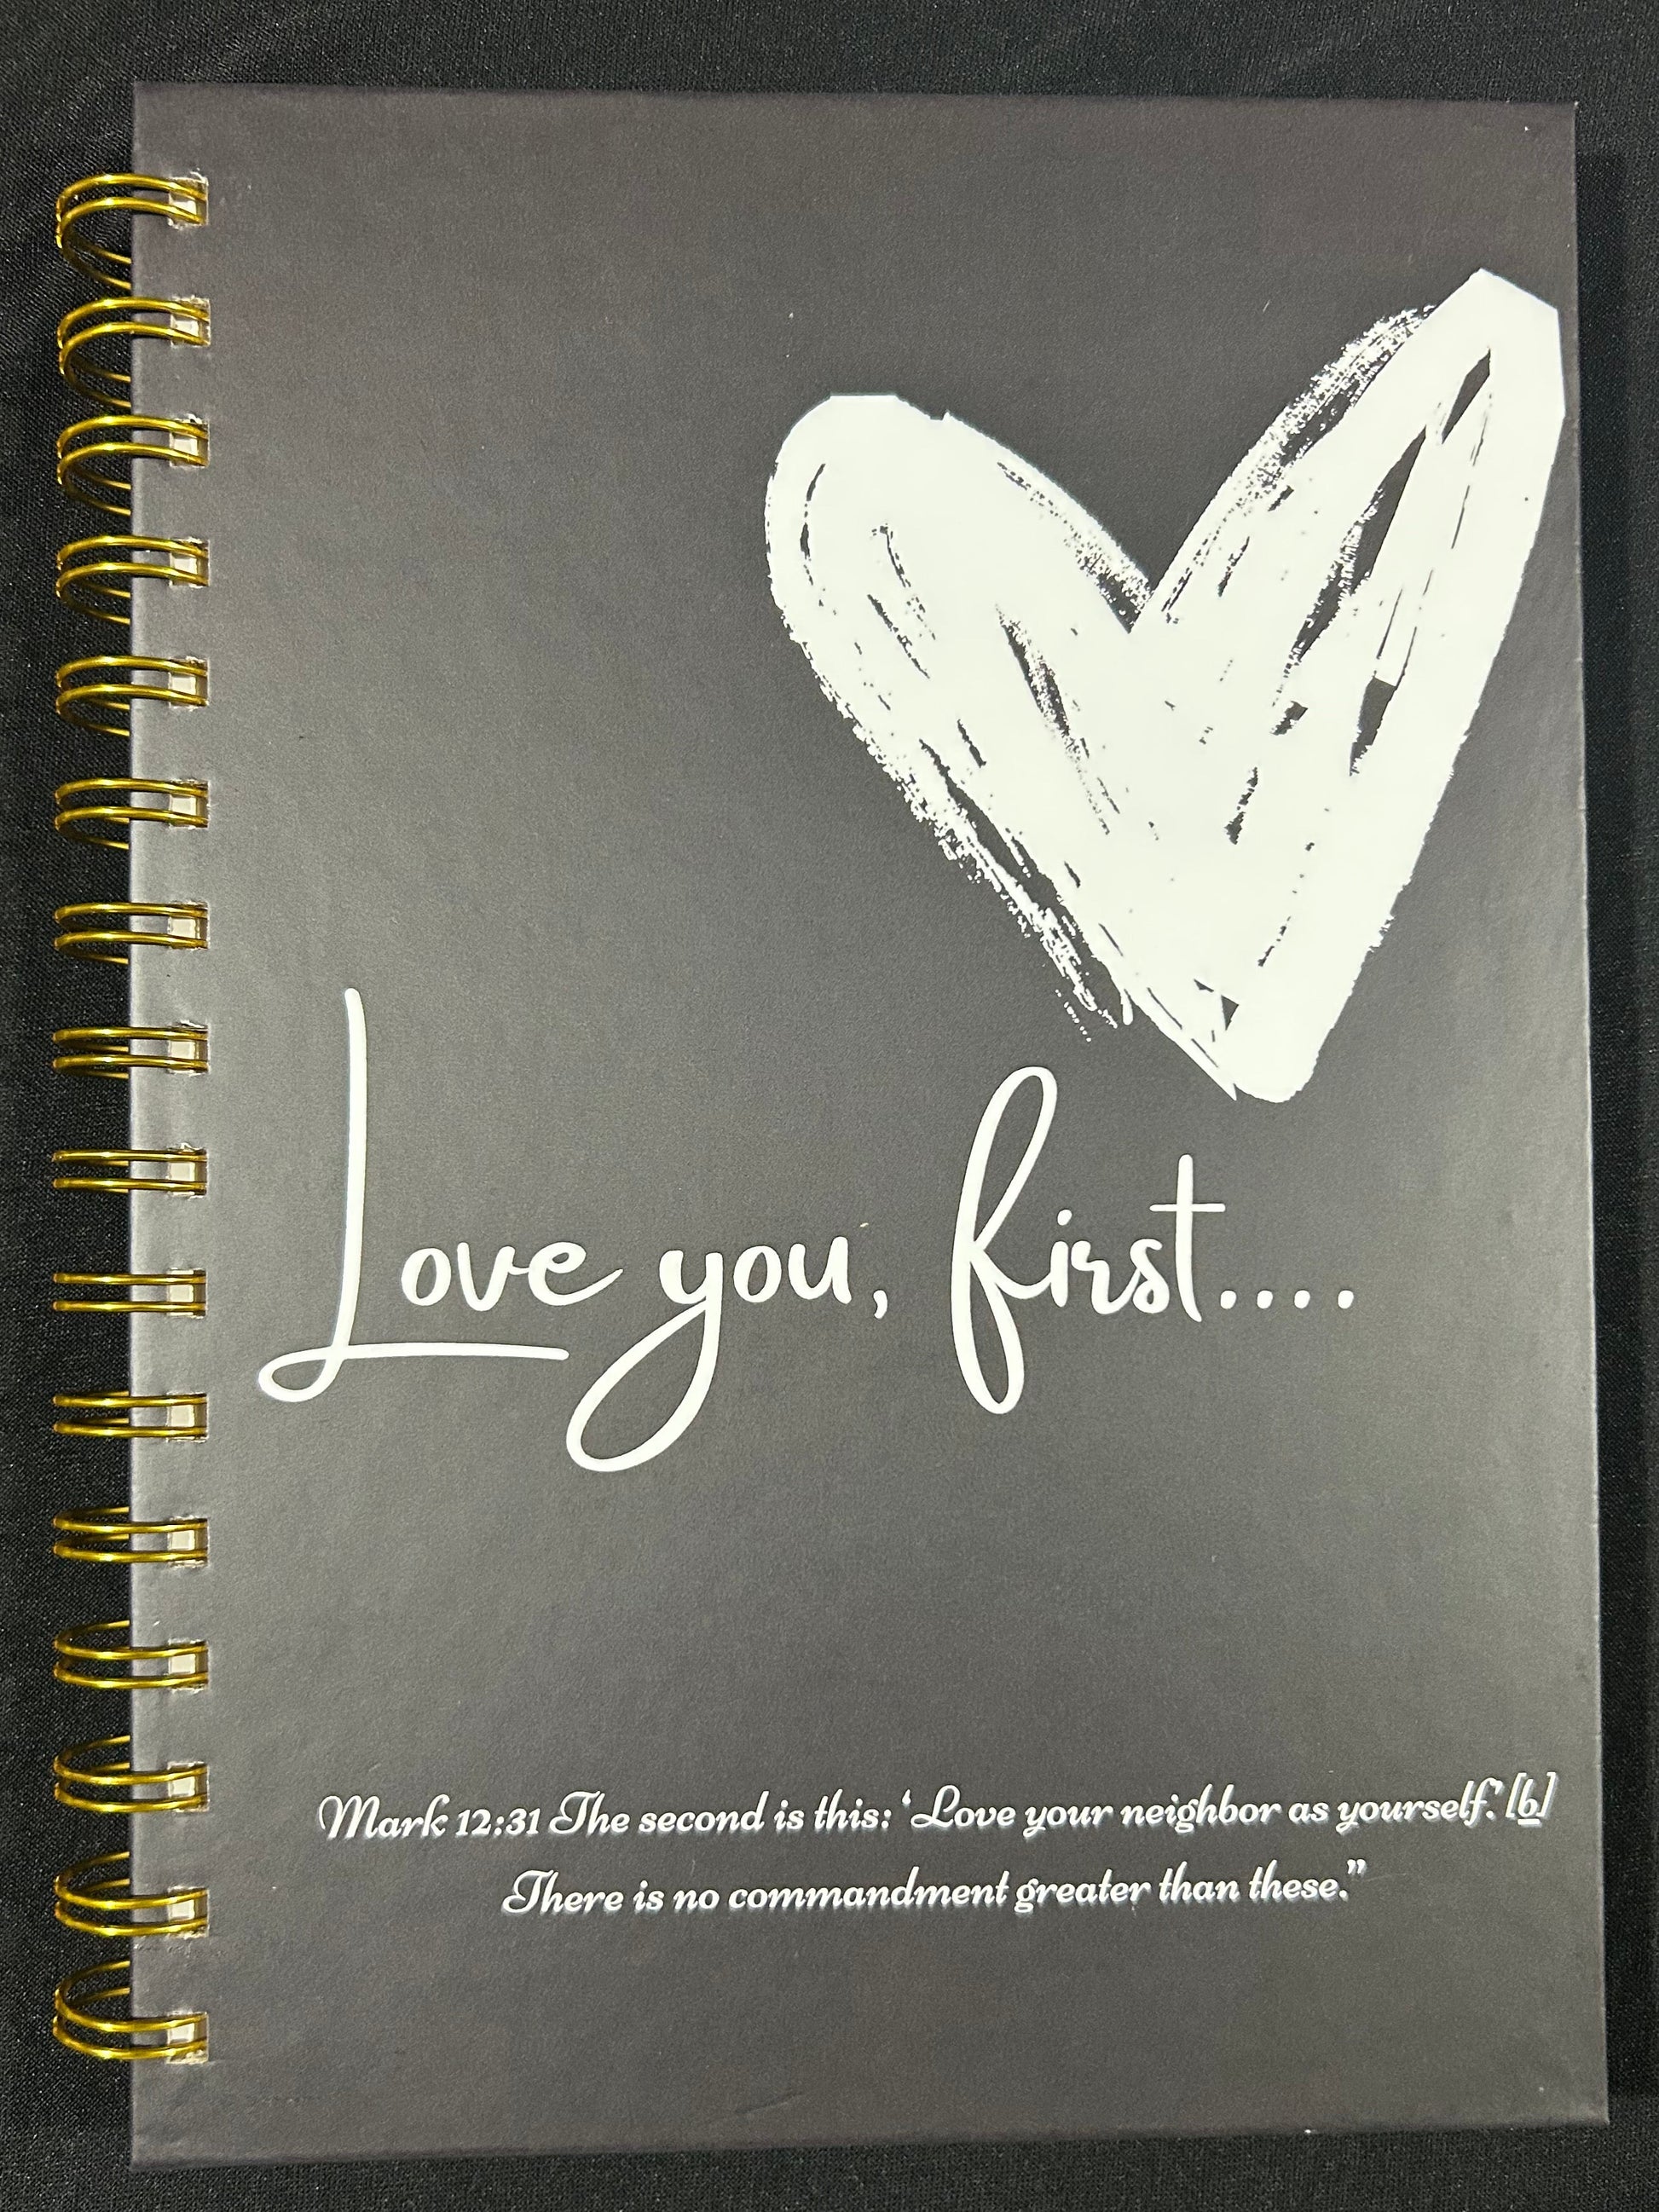 Love you, first....
Mark 12:31 The second is this: ‘Love your neighbor as yourself.’[b]
There is no commandment greater than these.”